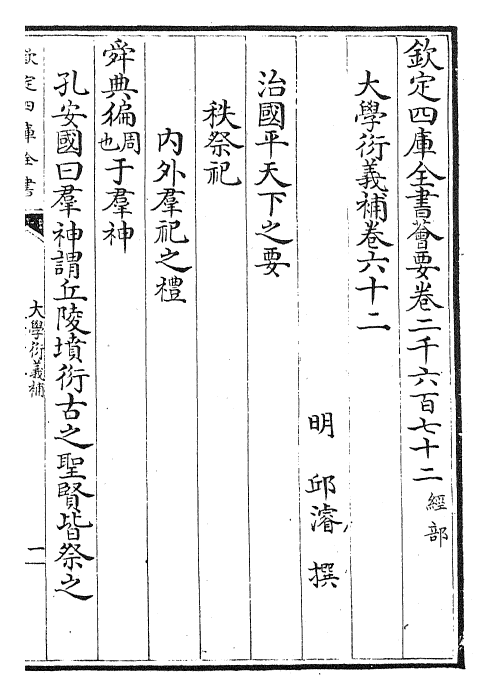 欽定四庫全書薈要卷二千六百七十二 經部
大學衍義補卷六十二
明 邱濬 撰
治國平天下之要
秩祭祀
內外羣祀之禮
舜典徧周也于羣神
孔安國曰羣神謂丘陵墳衍古之聖賢皆祭之
欽定四庫全書
大學衍義補
一